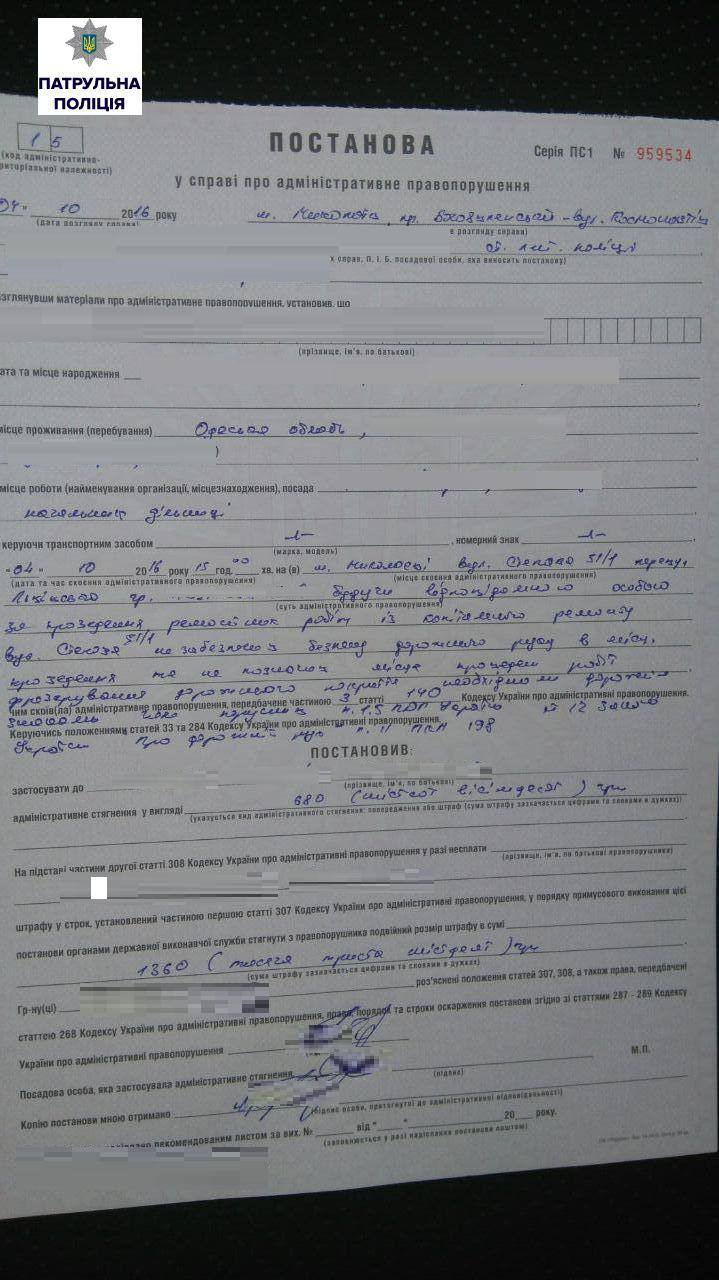 ПАТРУЛЬНА
ПОЛІЦІЯ
15
(код адміністративно-
територіальної належності)
ПОСТАНОВА
Серія ПС1 № 959534
у справі про адміністративне правопорушення
04 " 10 2016 року м.
(дата розгляду справи)
розгляду справи)
поліції
справ, П. І. Б. посадової особи, яка виносить постанову)
розглянувши матеріали про адміністративне правопорушення, установив, що
(прізвище, ім'я, по батькові)
ата та місце народження
місце проживання (перебування) Одеська область,
)
місце роботи (найменування організації, місцезнаходження), посада
начальник дільниці
керуючи транспортним засобом , номерний знак
(марка, модель)
"04" 10 2016 року 15 год. 00 хв. на (в) м. Миколаєві вул. 51/1
(дата та час скоєння адміністративного правопорушення) (місце скоєння адміністративного правопорушення)
гр. будучи відповідальною особою
(суть адміністративного правопорушення)
за проведення ремонтних робіт із капітального ремонту
вул. 51/1 не забезпечив безпеку дорожнього руху в місці
проведення та не позначив місце проведення робіт
фрезерування дорожнього покриття необхідними дорожніми
чим скоїв(ла) адміністративне правопорушення, передбачене частиною 3 статті 140 Кодексу України про адміністративні правопорушення.
знаками чим порушив п. 1.5 ПДР України 12 Закону
Керуючись положеннями статей 33 та 284 Кодексу України про адміністративні правопорушення,
України Про дорожній рух п. 11 ПКМ 198
ПОСТАНОВИВ:
застосувати до
(прізвище, ім'я, по батькові)
адміністративне стягнення у вигляді 680 (шістсот вісімдесят) грн
(указується вид адміністративного стягнення: попередження або штраф (сума штрафу зазначається цифрами та словами в дужках))
На підставі частини другої статті 308 Кодексу України про адміністративні правопорушення у разі несплати
(прізвище, ім'я, по батькові правопорушника)
штрафу у строк, установлений частиною першою статті 307 Кодексу України про адміністративні правопорушення, у порядку примусового виконання цієї
постанови органами державної виконавчої служби стягнути з правопорушника подвійний розмір штрафу в сумі
1360 (тисяча триста шістдесят) грн
(сума штрафу зазначається цифрами та словами в дужках)
Гр-ну(ці) роз'яснені положення статей 307, 308, а також права, передбачені
статтею 268 Кодексу України про адміністративні правопорушення, право, порядок та строки оскарження постанови згідно зі статтями 287 - 289 Кодексу
України про адміністративні правопорушення
Посадова особа, яка застосувала адміністративне стягнення
(підпис)
М.П.
Копію постанови мною отримано
(підпис особи, притягнутої до адміністративної відповідальності)
рекомендованим листом за вих. № від " " 20 року.
(заповнюється у разі надіслання постанови поштою)